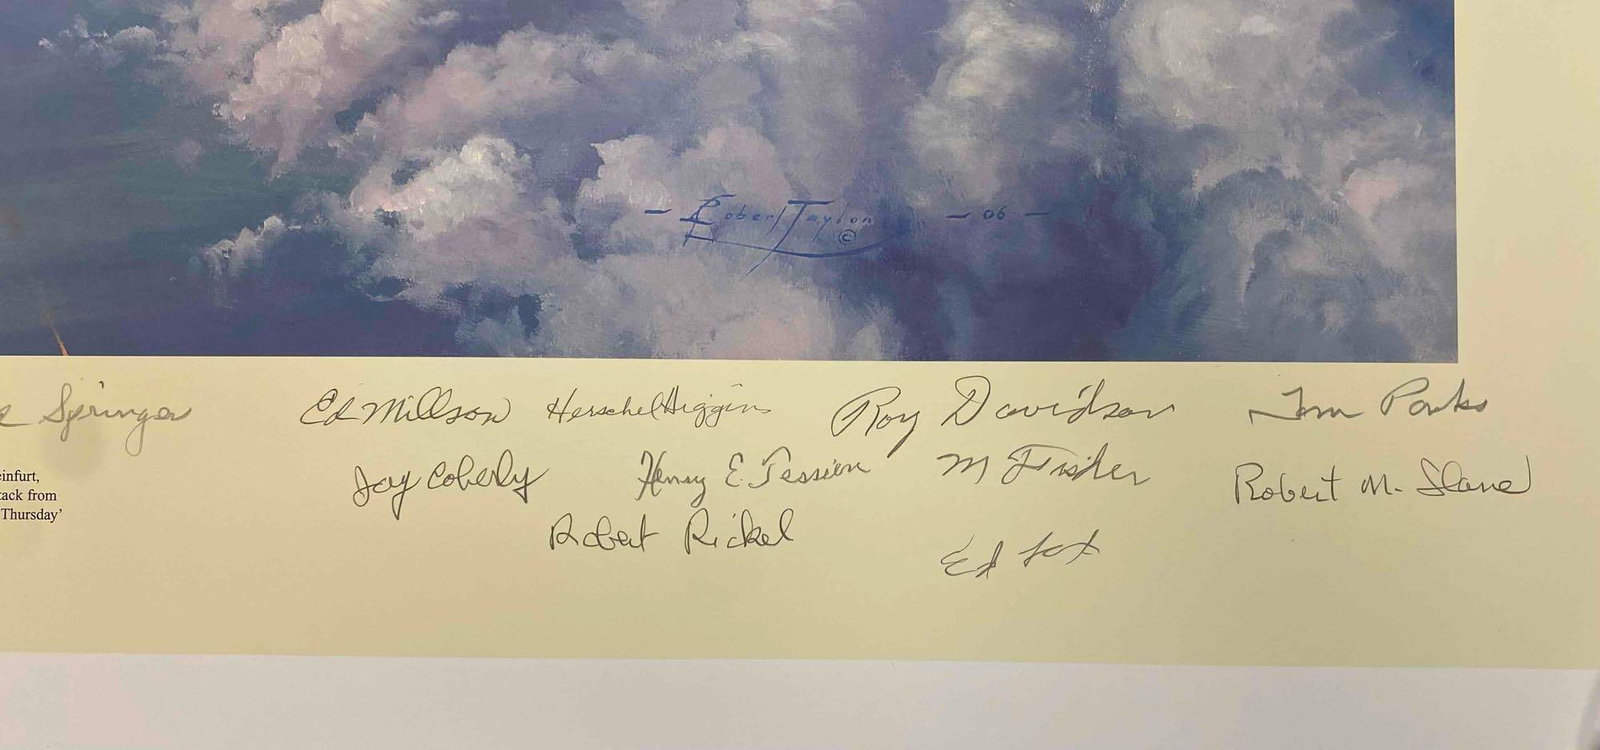 Robert Taylor © - 06 -
Springer Ed Millson Herschel Higgins Roy Davidson Tom Parks
einfurt,
tack from
Thursday’
Jay Coberly Henry E. M Robert M.
Robert Rickel Ed Fox